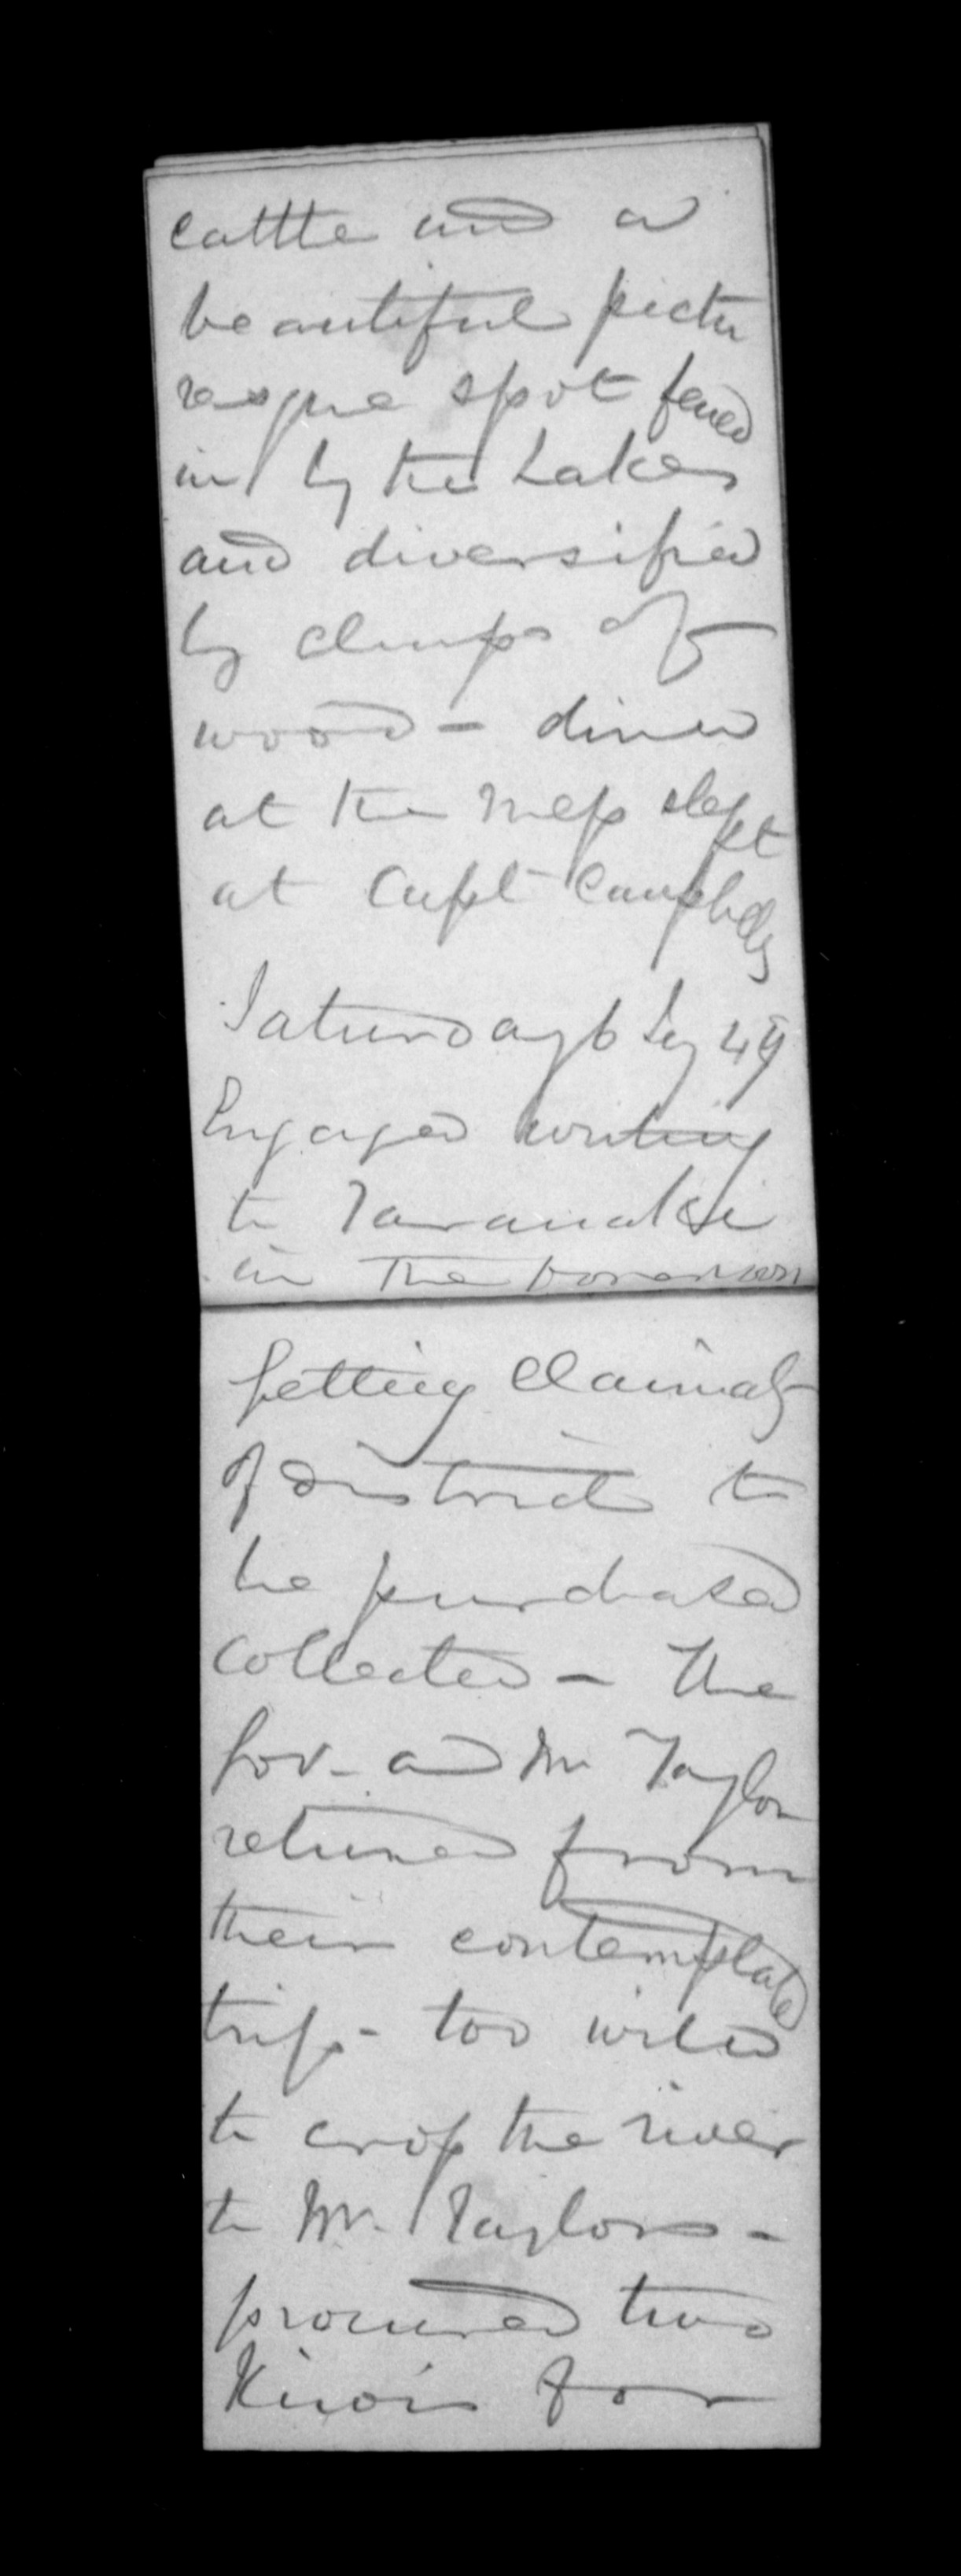 cattle and a
beautiful pictu
resque spot fenced
in by the Lakes
and diversified
by clumps of
wood - dined
at the Mess slept
at Capt Campbells
Saturday 6 49
Engaged writing
to Taranaki
in the forenoon
Getting Claimants
of district to
be purchased
collected - The
Gov. and Mr Taylor
returned from
their contemplated
trip - too wild
to cross the river
to Mr. Taylors -
procured two
Kiwis for